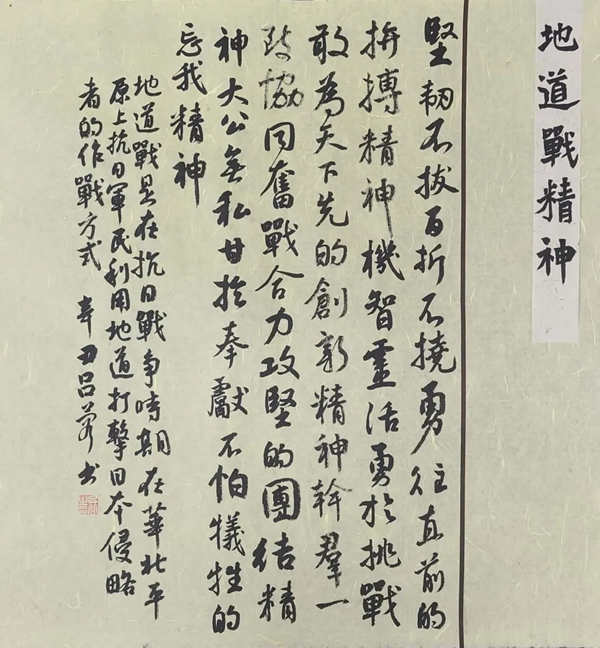 地道戰精神
堅韌不拔百折不撓勇往直前的
拚搏精神機智靈活勇於挑戰
敢為天下先的創新精神幹羣一
致協同奮戰合力攻堅的團結精
神大公無私甘於奉獻不怕犧牲的
忘我精神
地道戰是在抗日戰爭時期在華北平
原上抗日軍民利用地道打擊日本侵略
者的作戰方式 辛丑呂 书